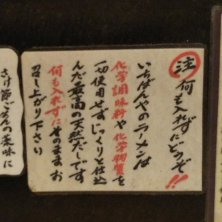 注 何も入れずにどうぞ!!
いちばんやのラーメンは
化学調味料や化学物質を
一切使用せずじっくりと仕込
んだ最高の天然だしです
何も入れずにそのままお
召し上がり下さい
さけ節ごはんの薬味に